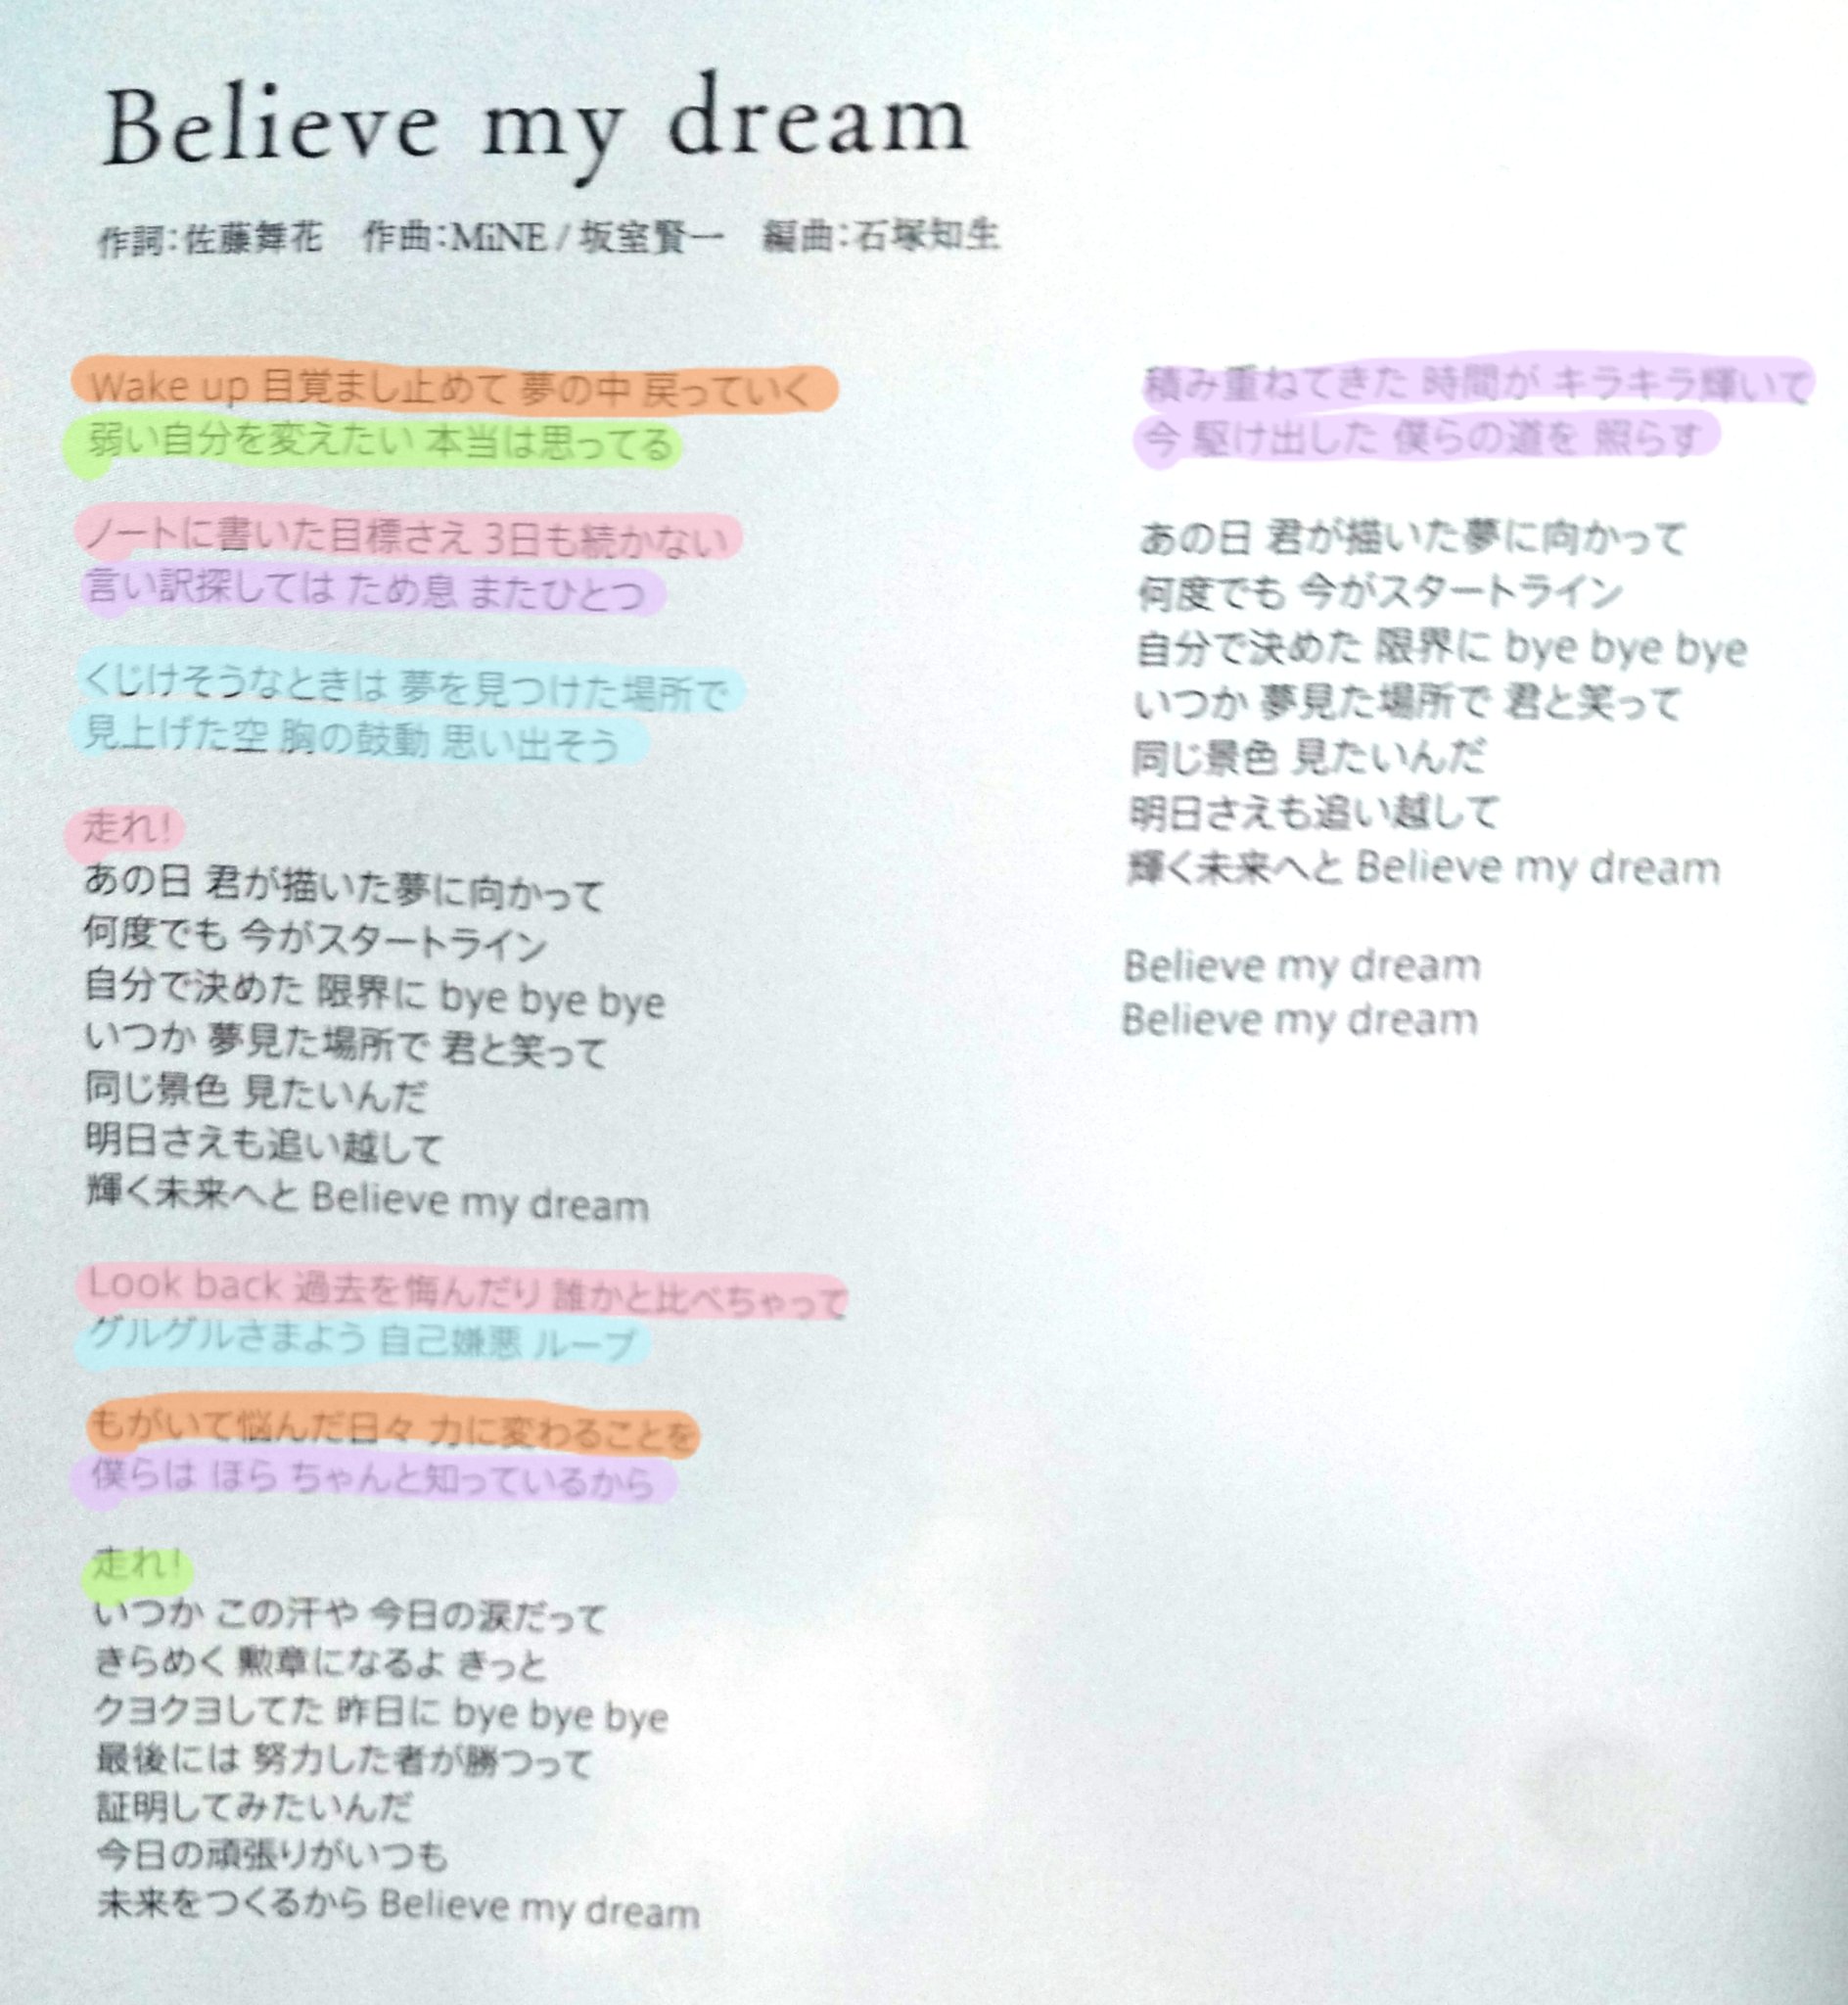 Believe my dream
作詞：佐藤舞花　作曲：MiNE / 坂室賢一　編曲：石塚知生
Wake up 目覚まし止めて 夢の中 戻っていく
弱い自分を変えたい 本当は思ってる
ノートに書いた目標さえ 3日も続かない
言い訳探しては ため息 またひとつ
くじけそうなときは 夢を見つけた場所で
見上げた空 胸の鼓動 思い出そう
走れ!
あの日 君が描いた夢に向かって
何度でも 今がスタートライン
自分で決めた 限界に bye bye bye
いつか 夢見た場所で 君と笑って
同じ景色 見たいんだ
明日さえも追い越して
輝く未来へと Believe my dream
Look back 過去を悔んだり 誰かと比べちゃって
グルグルさまよう 自己嫌悪 ループ
もがいて悩んだ日々 力に変わることを
僕らは ほら ちゃんと知っているから
走れ!
いつか この汗や 今日の涙だって
きらめく 勲章になるよ きっと
クヨクヨしてた 昨日に bye bye bye
最後には 努力した者が勝つって
証明してみたいんだ
今日の頑張りがいつも
未来をつくるから Believe my dream
積み重ねてきた 時間が キラキラ輝いて
今 駆け出した 僕らの道を 照らす
あの日 君が描いた夢に向かって
何度でも 今がスタートライン
自分で決めた 限界に bye bye bye
いつか 夢見た場所で 君と笑って
同じ景色 見たいんだ
明日さえも追い越して
輝く未来へと Believe my dream
Believe my dream
Believe my dream